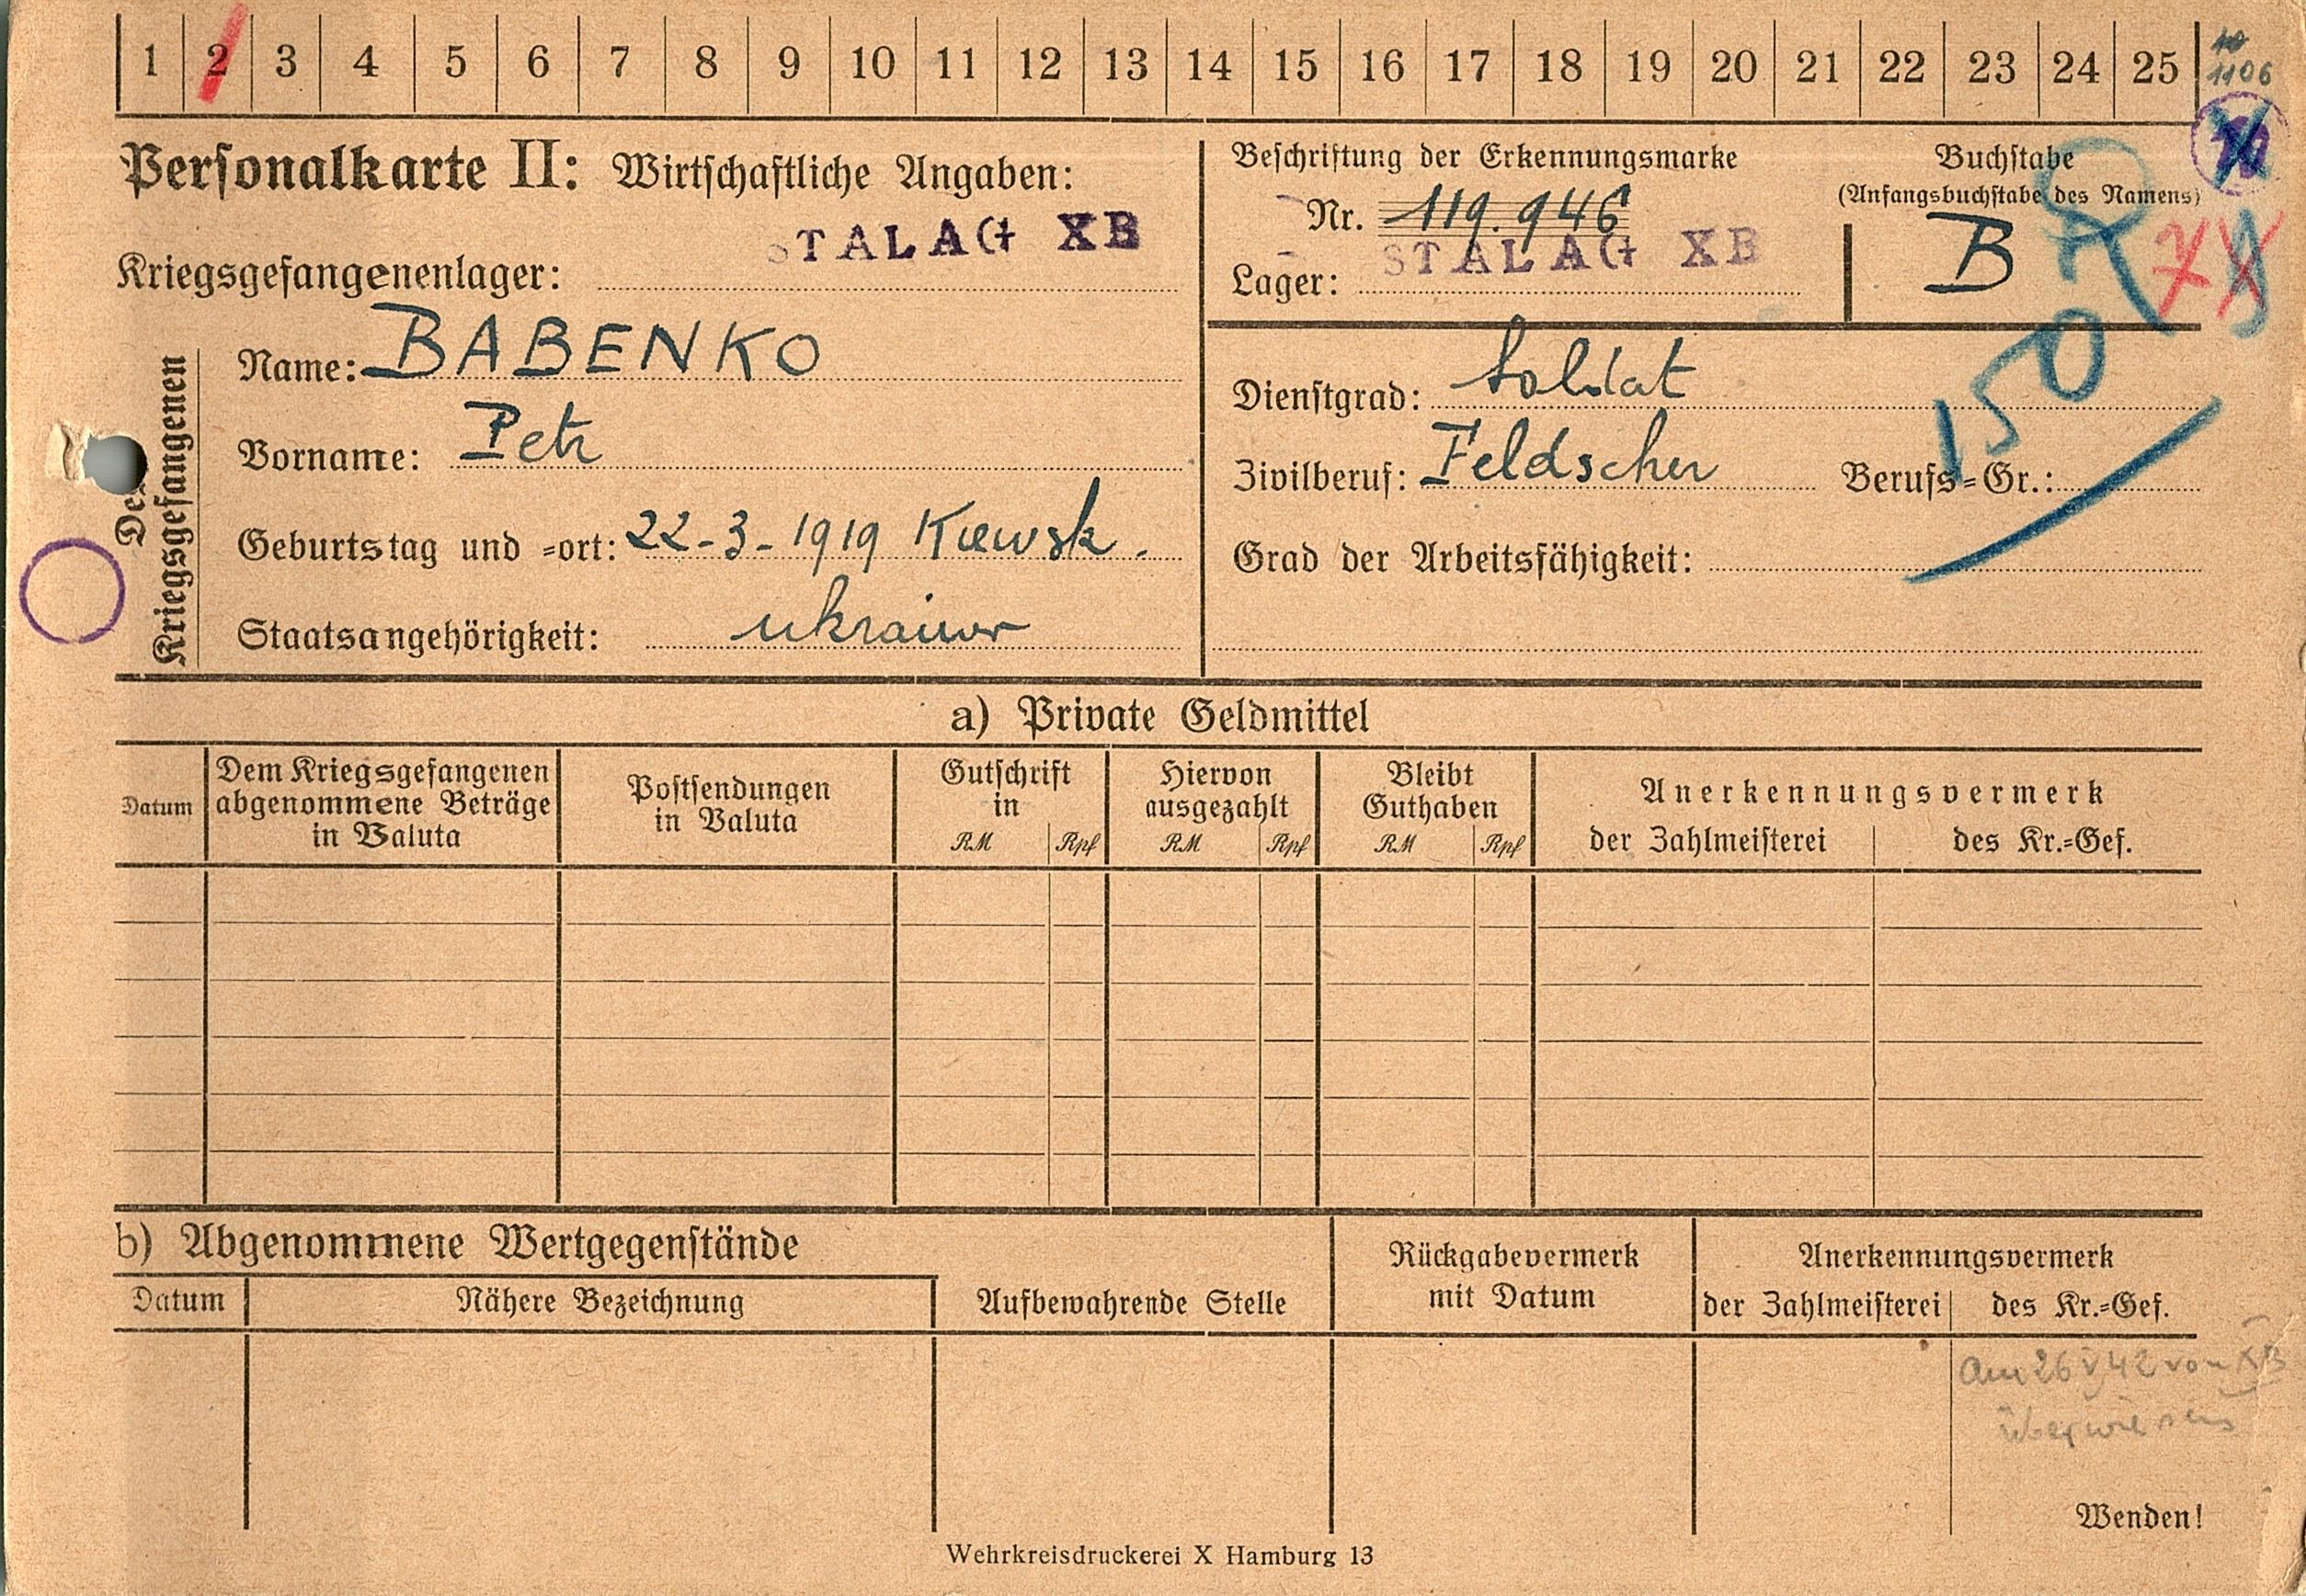 1 2 3 4 5 6 7 8 9 10 11 12 13 14 15 16 17 18 19 20 21 22 23 24 25
1106
Personalkarte II: Wirtschaftliche Angaben:
STALAG XB
Kriegsgefangenenlager:
Beschriftung der Erkennungsmarke
Nr. 119.946
STALAG XB
Lager:
Buchstabe
(Anfangsbuchstabe des Namens)
B
Des Kriegsgefangenen
Name: BABENKO
Vorname: Petr
Geburtstag und =ort: 22-3-1919 Kiewsk.
Staatsangehörigkeit: ukrainer
Dienstgrad: Soldat
150
Zivilberuf: Feldscher Berufs=Gr.:
Grad der Arbeitsfähigkeit:
a) Private Geldmittel
Datum
Dem Kriegsgefangenen
abgenommene Beträge
in Valuta
Postsendungen
in Valuta
Gutschrift
in
RM Rpf
Hiervon
ausgezahlt
RM Rpf
Bleibt
Guthaben
RM Rpf
Anerkennungsvermerk
der Zahlmeisterei des Kr.=Gef.
b) Abgenommene Wertgegenstände
Datum Nähere Bezeichnung
Aufbewahrende Stelle
Rückgabevermerk
mit Datum
Anerkennungsvermerk
der Zahlmeisterei des Kr.=Gef.
Am 26 V 42 von XB
überwiesen
Wenden!
Wehrkreisdruckerei X Hamburg 13